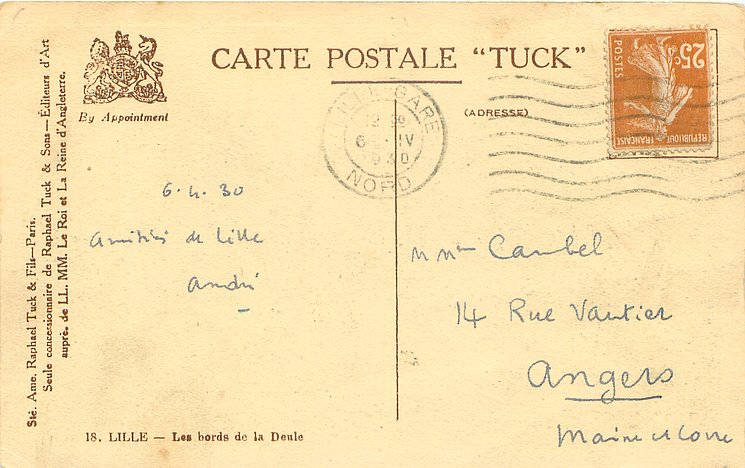 CARTE POSTALE “TUCK”
By Appointment
(ADRESSE)
25c
POSTES
REPUBLIQUE FRANÇAISE
LILLE-GARE
12 30
6 - IV
1930
NORD
Sté. Ame. Raphael Tuck & Fils—Paris.
Seule concessionnaire de Raphael Tuck & Sons—Éditeurs d'Art
auprès de LL. MM. Le Roi et La Reine d'Angleterre.
6.4.30
Amitiés de Lille
André
M Mme Cambel
14 Rue Vautier
Angers
Maine et Loire
18. LILLE — Les bords de la Deule